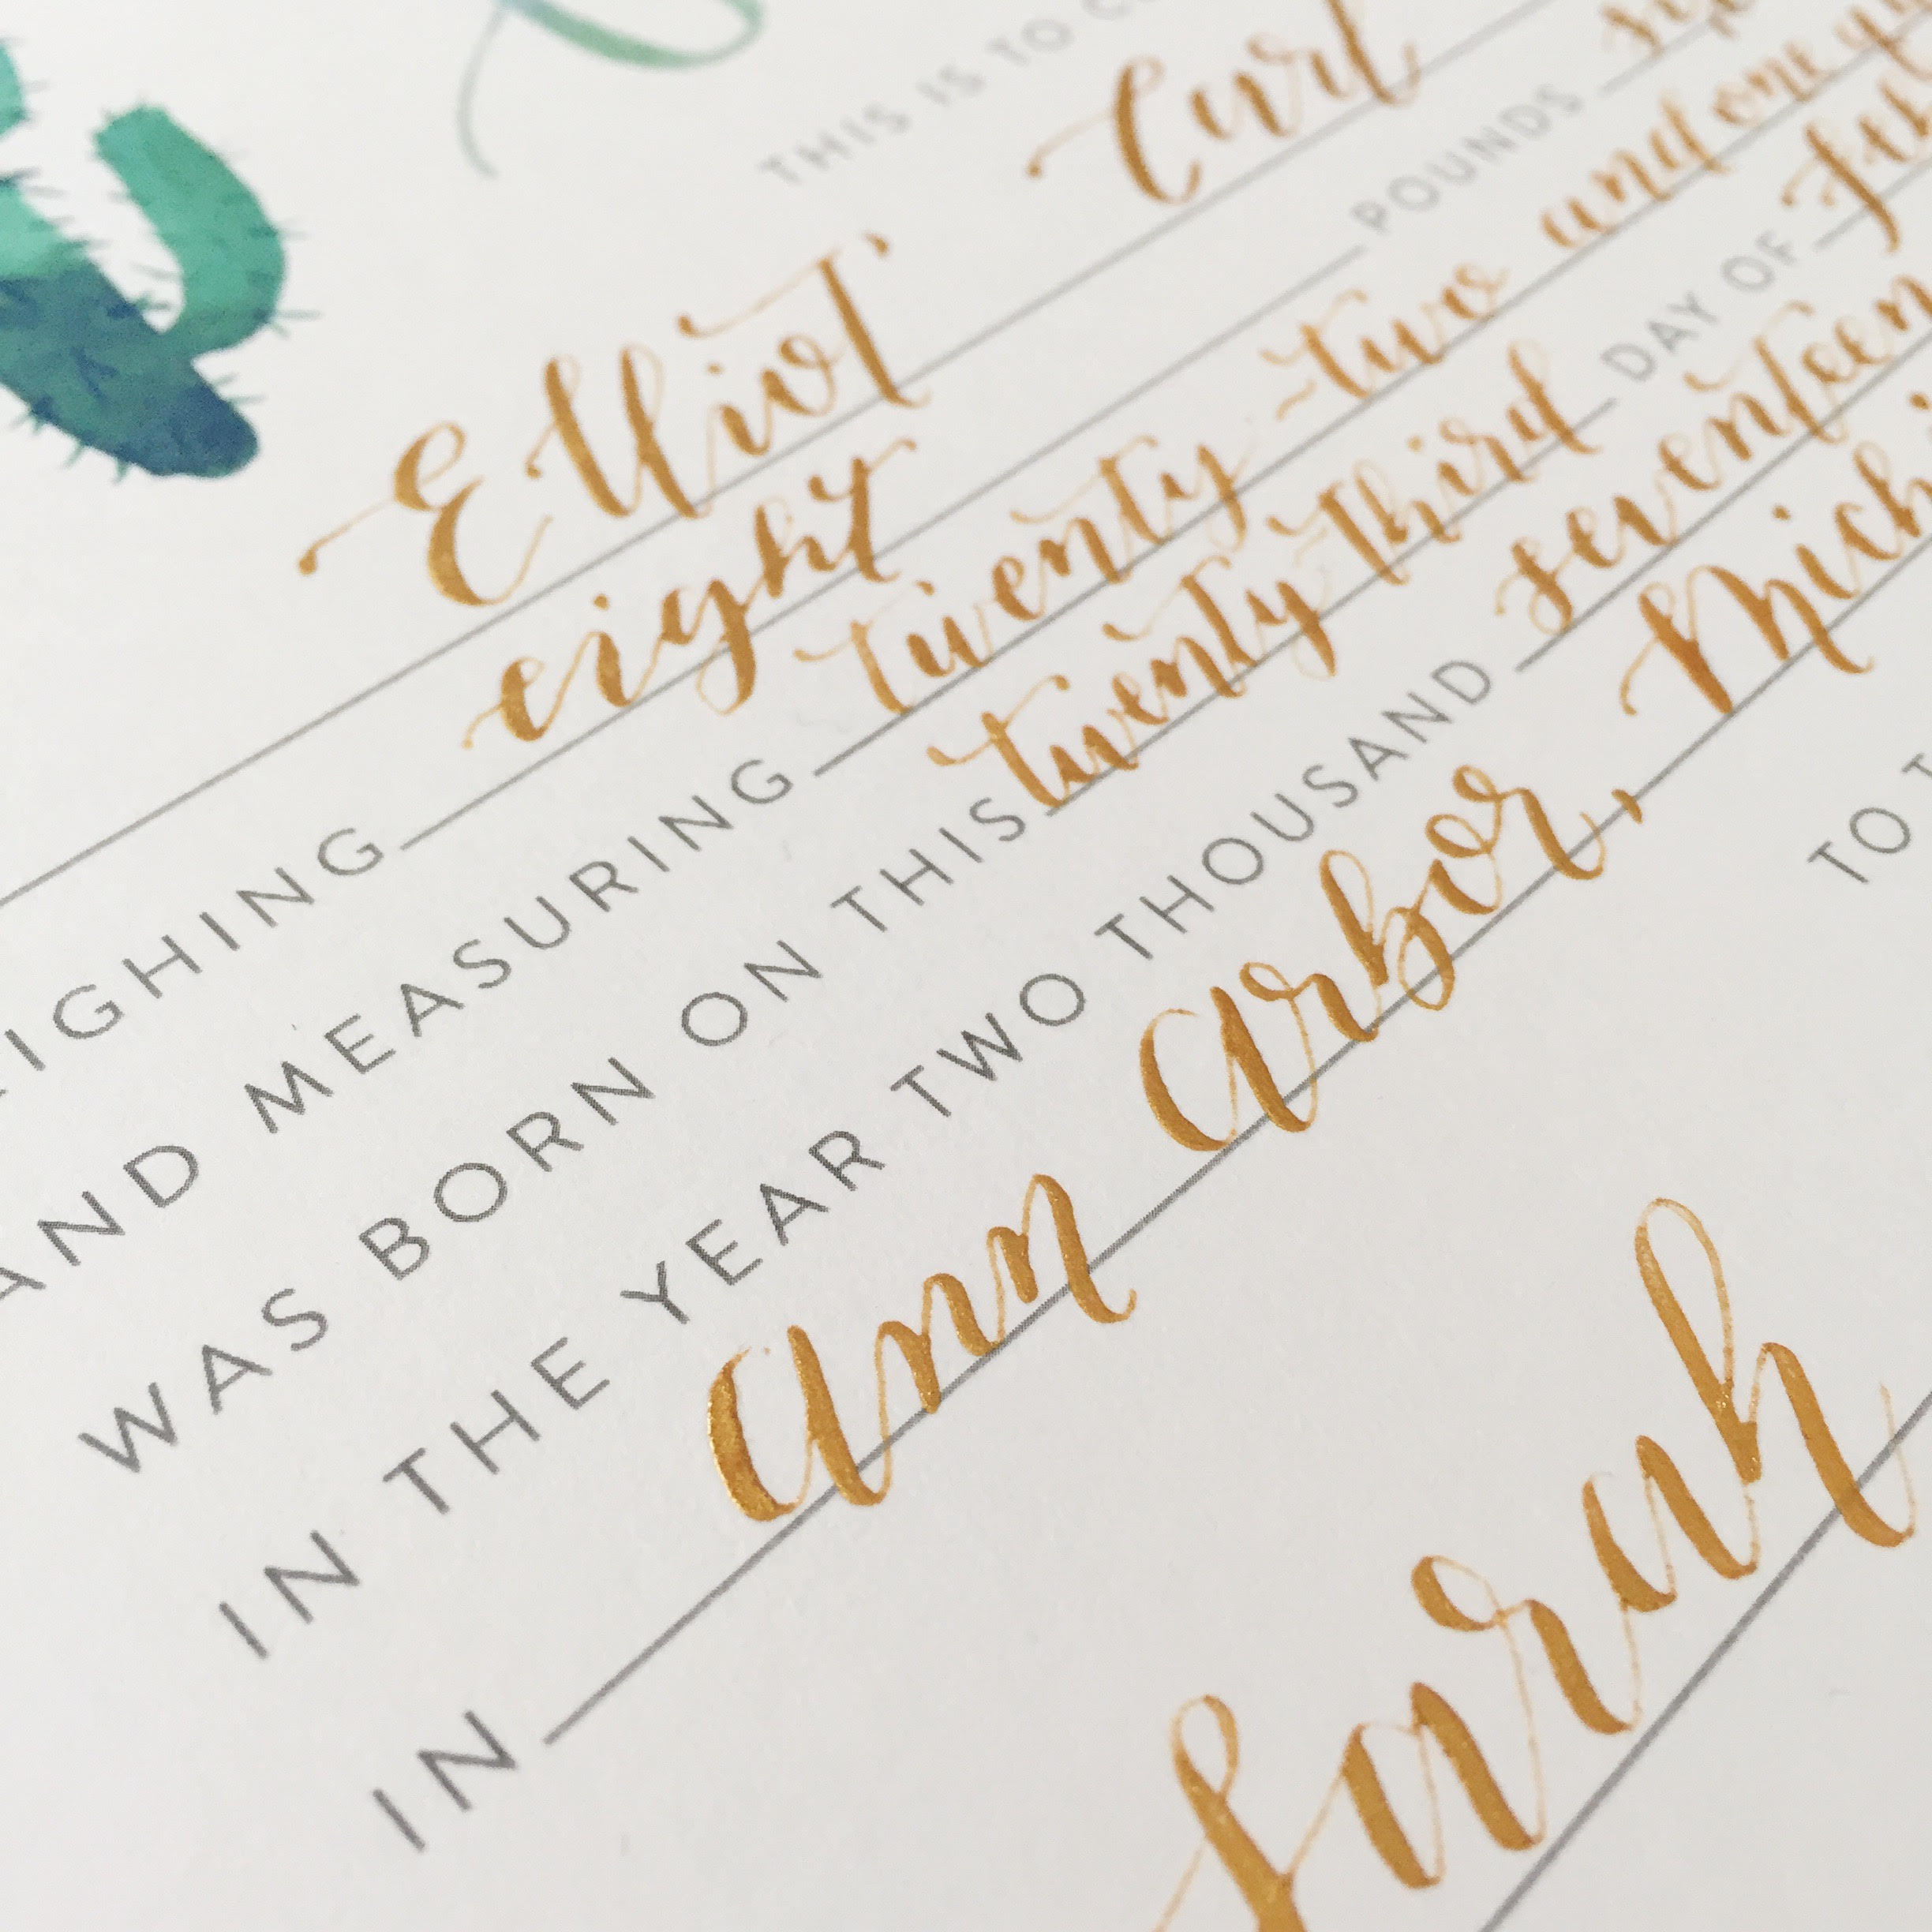 THIS IS TO
Elliot Carl
IGHING eight POUNDS
AND MEASURING twenty-two and one
WAS BORN ON THIS twenty third DAY OF
IN THE YEAR TWO THOUSAND seventeen
IN ann arbor, Mich
TO
Sarah